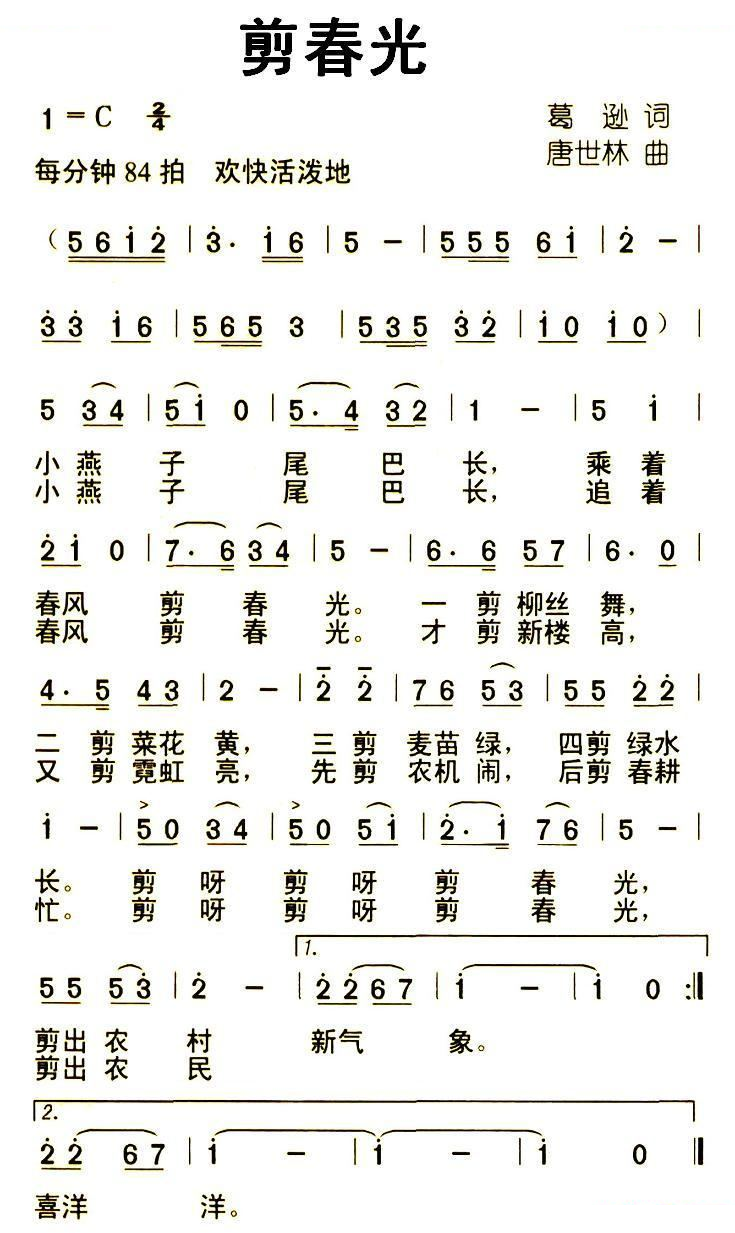 剪春光
1=C 2/4
葛逊 词
每分钟 84 拍 欢快活泼地
唐世林 曲
(5 6 1̇ 2̇ | 3̇· 1̇ 6 | 5 – | 5 5 5 6 1̇ | 2̇ – |
3̇ 3̇ 1̇ 6 | 5 6 5 3 | 5 3 5 3̇ 2̇ | 1̇ 0 1̇ 0) |
5 3 4 | 5 1̇ 0 | 5· 4 3 2 | 1 – | 5 1̇ |
小 燕 子 尾 巴 长, 乘 着
小 燕 子 尾 巴 长, 追 着
2̇ 1̇ 0 | 7· 6 3 4 | 5 – | 6· 6 5 7 | 6· 0 |
春风 剪 春 光。 一 剪 柳丝 舞,
春风 剪 春 光。 才 剪 新楼 高,
4· 5 4 3 | 2 – | 2̇ 2̇ | 7 6 5 3 | 5 5 2̇ 2̇ |
二 剪 菜花 黄, 三 剪 麦苗 绿, 四剪 绿水
又 剪 霓虹 亮, 先 剪 农机 闹, 后剪 春耕
1̇ – | 5 0 3 4 | 5 0 5 1̇ | 2̇· 1̇ 7 6 | 5 – |
长。 剪 呀 剪 呀 剪 春 光,
忙。 剪 呀 剪 呀 剪 春 光,
1.
5 5 5 3̇ | 2̇ – | 2̇ 2̇ 6 7 | 1̇ – | 1̇ 0 :‖
剪出 农 村 新气 象。
剪出 农 民
2.
2̇ 2̇ 6 7 | 1̇ – | 1̇ – | 1̇ 0 ‖
喜洋 洋。